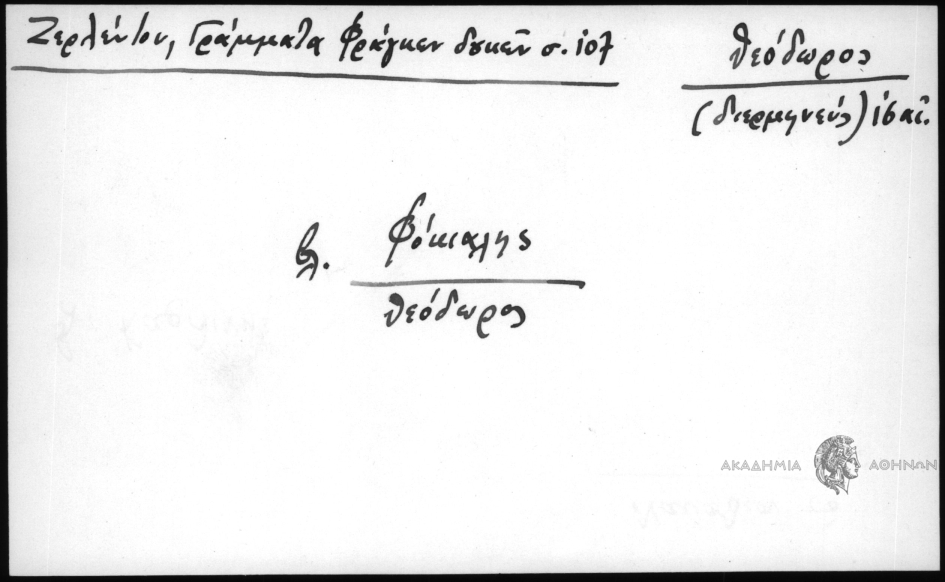 Ζερλέντου, Γράμματα Φράγκων δουκῶν σ. 107
Θεόδωρος
(διερμηνεύς) 16 αἰ.
βλ. Φόκιαλης
Θεόδωρος
ΑΚΑΔΗΜΙΑ ΑΘΗΝΩΝ